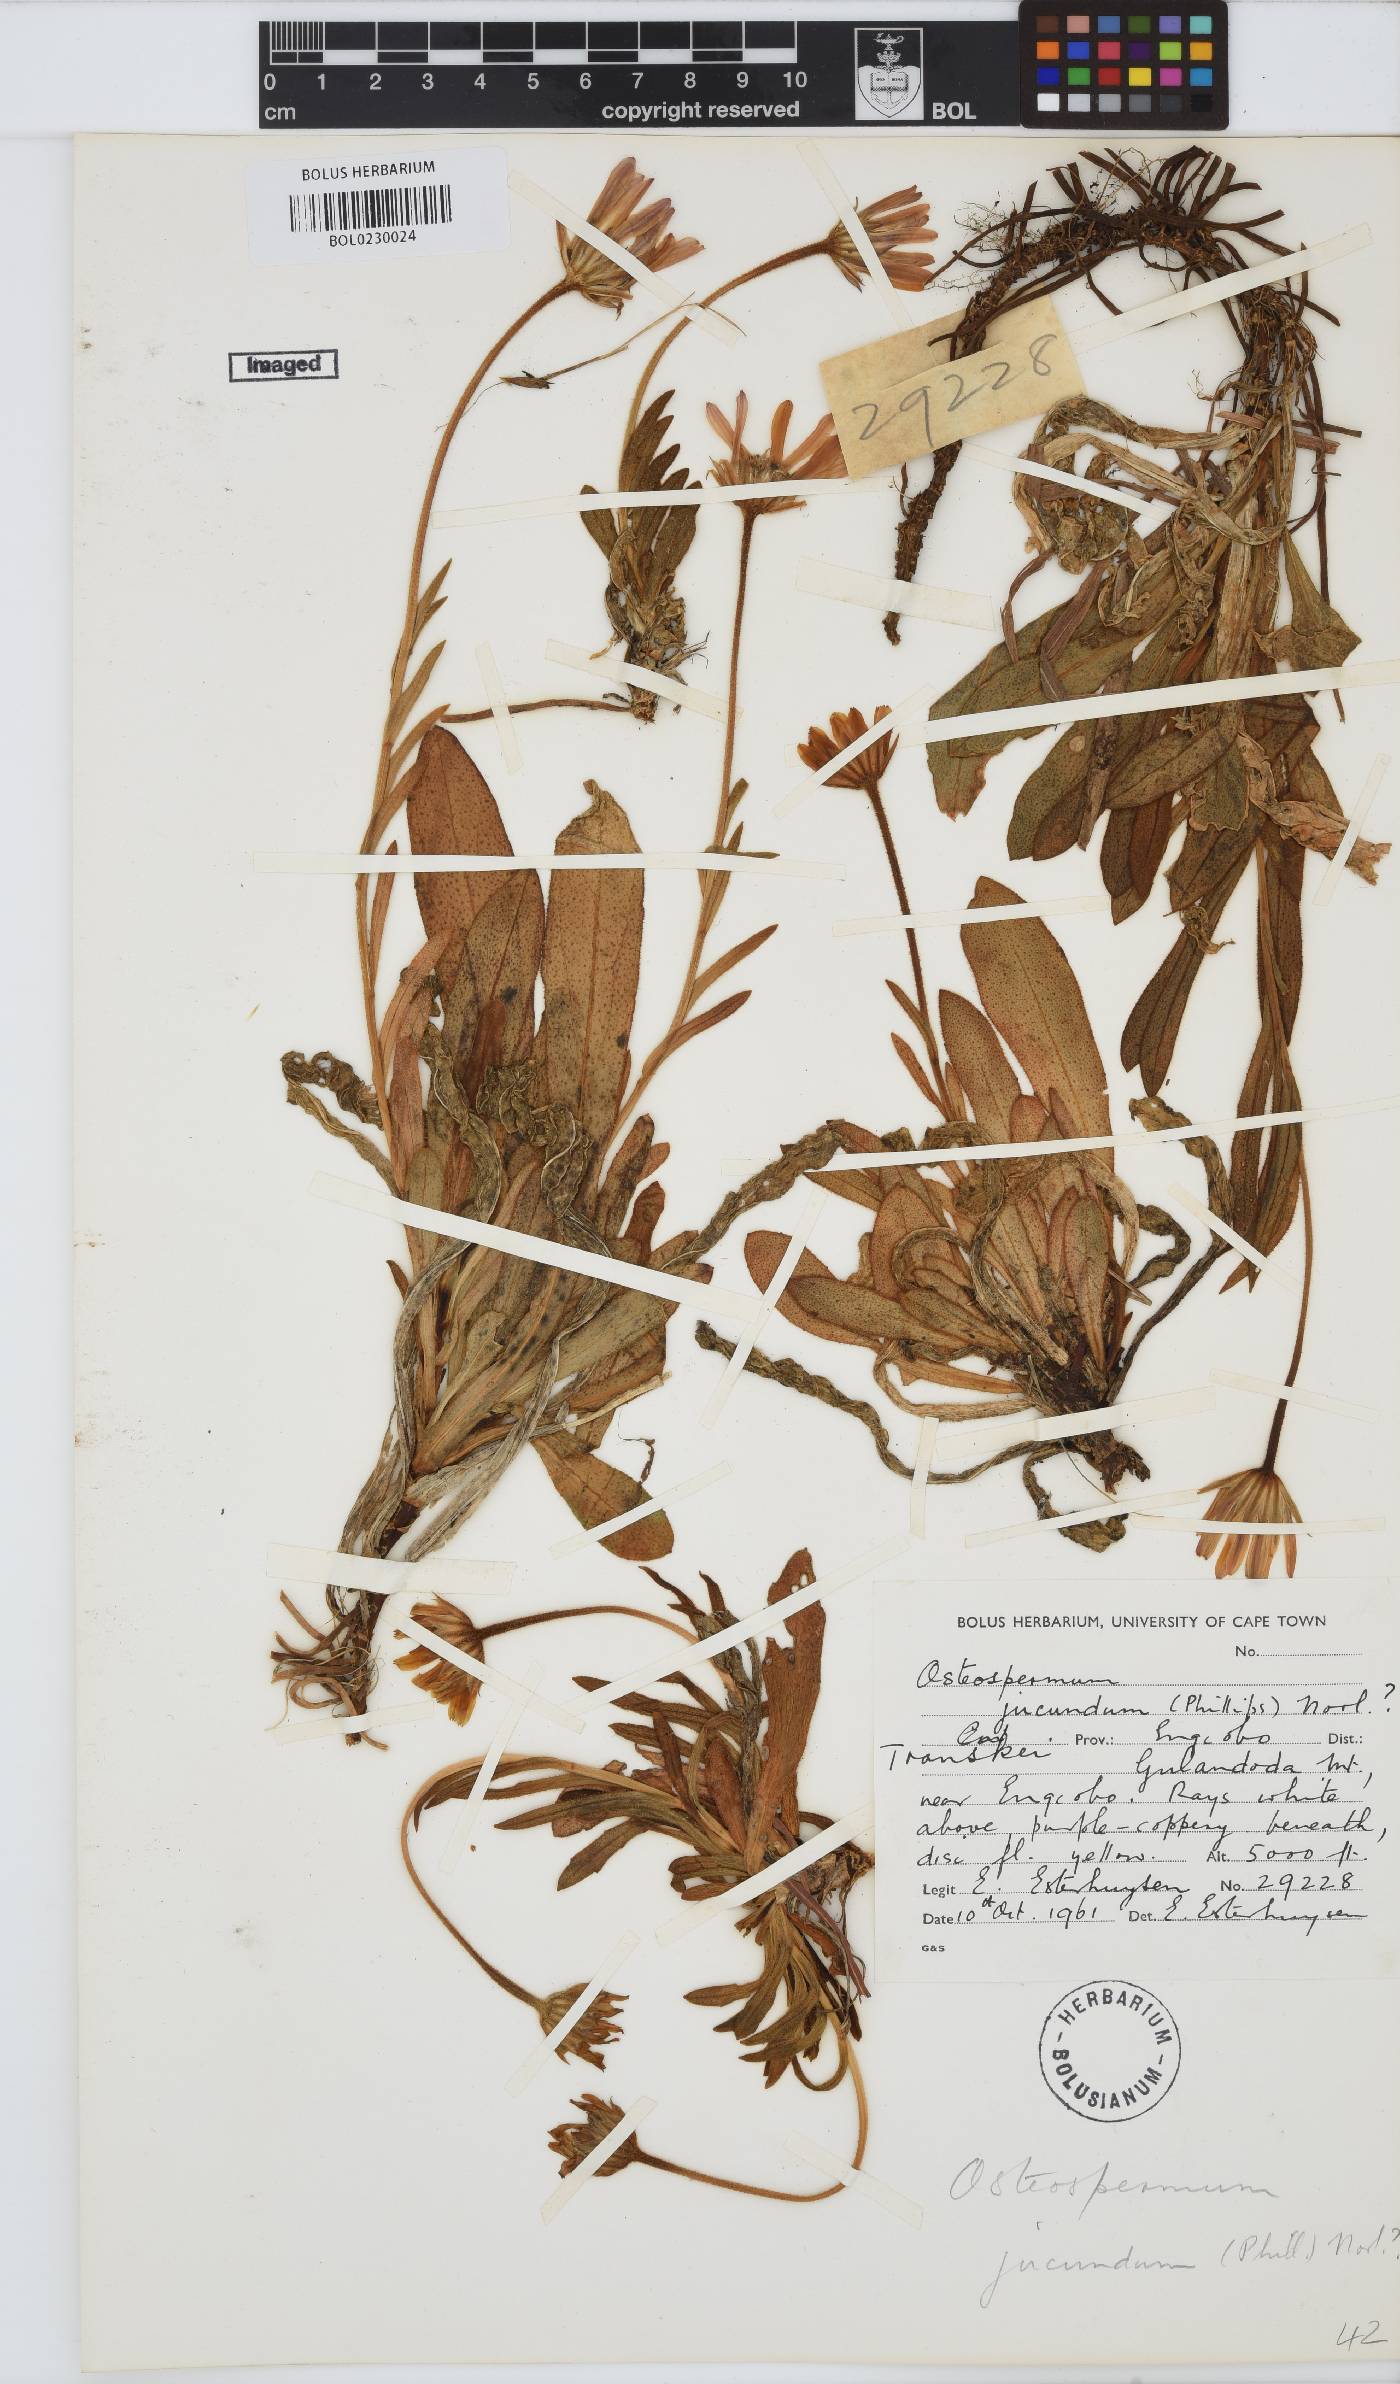 0 1 2 3 4 5 6 7 8 9 10
cm copyright reserved BOL
BOLUS HERBARIUM
BOL0230024
Imaged
29228
BOLUS HERBARIUM, UNIVERSITY OF CAPE TOWN
No.
Osteospermum
jucundum (Phillips) Norl.?
Prov.: Engcobo Dist.:
Transkei Gulandoda Mt.,
near Engcobo. Rays white
above, purple-coppery beneath,
disc fl. yellow. Alt. 5000 ft.
Legit E. Esterhuysen No. 29228
Date 10th Oct. 1961 Det. E. Esterhuysen
G&S
HERBARIUM
BOLUSIANUM
Osteospermum
jucundum (Phill.) Norl.?
42